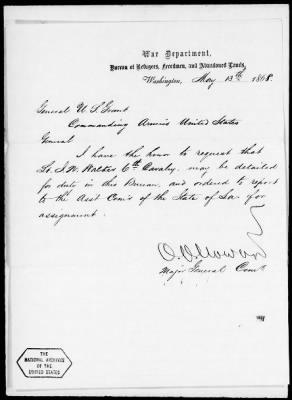 War Department,
Bureau of Refugees, Freedmen, and Abandoned Lands,
Washington, May 13th 1868.
General U. S. Grant
Commanding Armies United States
General
I have the honor to request that
Lt. J. W. Walter 6th Cavalry, may be detailed
for duty in this Bureau, and ordered to report
to the Asst Com'r of the State of La. for
assignment.
O. O. Howard
Major General Comr
THE
NATIONAL ARCHIVES
OF THE
UNITED STATES